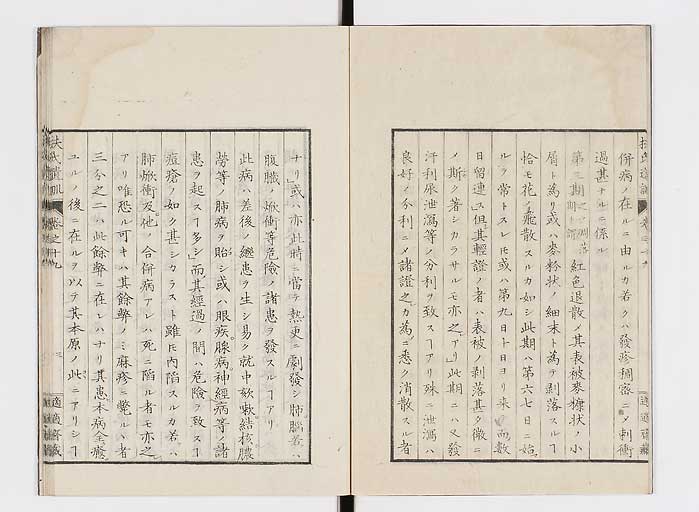 併病ノ在ルニ由ルカ若クハ發疹稠密ニメ刺衝
過甚ナルニ係ル
第三期 紅色退散メ其表被麥糠状ノ小
屑ト為リ或ハ麥粉状ノ細末ト為テ剥落スルヿ
恰モ花ノ飛散スルカ如シ此期ハ第六七日ニ始
ルヲ常トスレ𪜈或ハ第九日十日ヨリ来 而數
日留連ス但其輕證ノ者ハ表被ノ剥落甚タ微ニ
ノ斯ク著シカラサルモ亦之アリ此期ニハ又發
汗利尿泄瀉等ノ分利ヲ致スヿアリ殊ニ泄瀉ハ
良好ノ分利ニメ諸證之カ為ニ悉ク消散スル者
ナリ或ハ亦此時ニ當テ熱更ニ劇發シ肺腦若ハ
腹臓ノ焮衝等危險ノ諸患ヲ發スルヿアリ
此病ハ差後ノ継患ヲ生シ易ク就中欬嗽結核膿
勞等ノ肺病ヲ貽シ或ハ眼疾腺病神經病等ノ諸
患ヲ起スヿ多シ而其經過ノ間ハ危險ヲ致スヿ
痘瘡ノ如ク甚シカラスト雖𪜈内陷スルカ若ハ
肺焮衝及他ノ合併病アレハ死ニ陷ル者モ亦之
アリ唯恐ル可キハ其餘弊ノミ麻疹ニ斃ルヽ者
三分之二ハ此餘弊ニ在レハナリ其患本病全癒
ユルノ後ニ在ルヲ以テ其本原ノ此ニアリシヿ
扶氏遺訓
巻之十九
適適齋藏